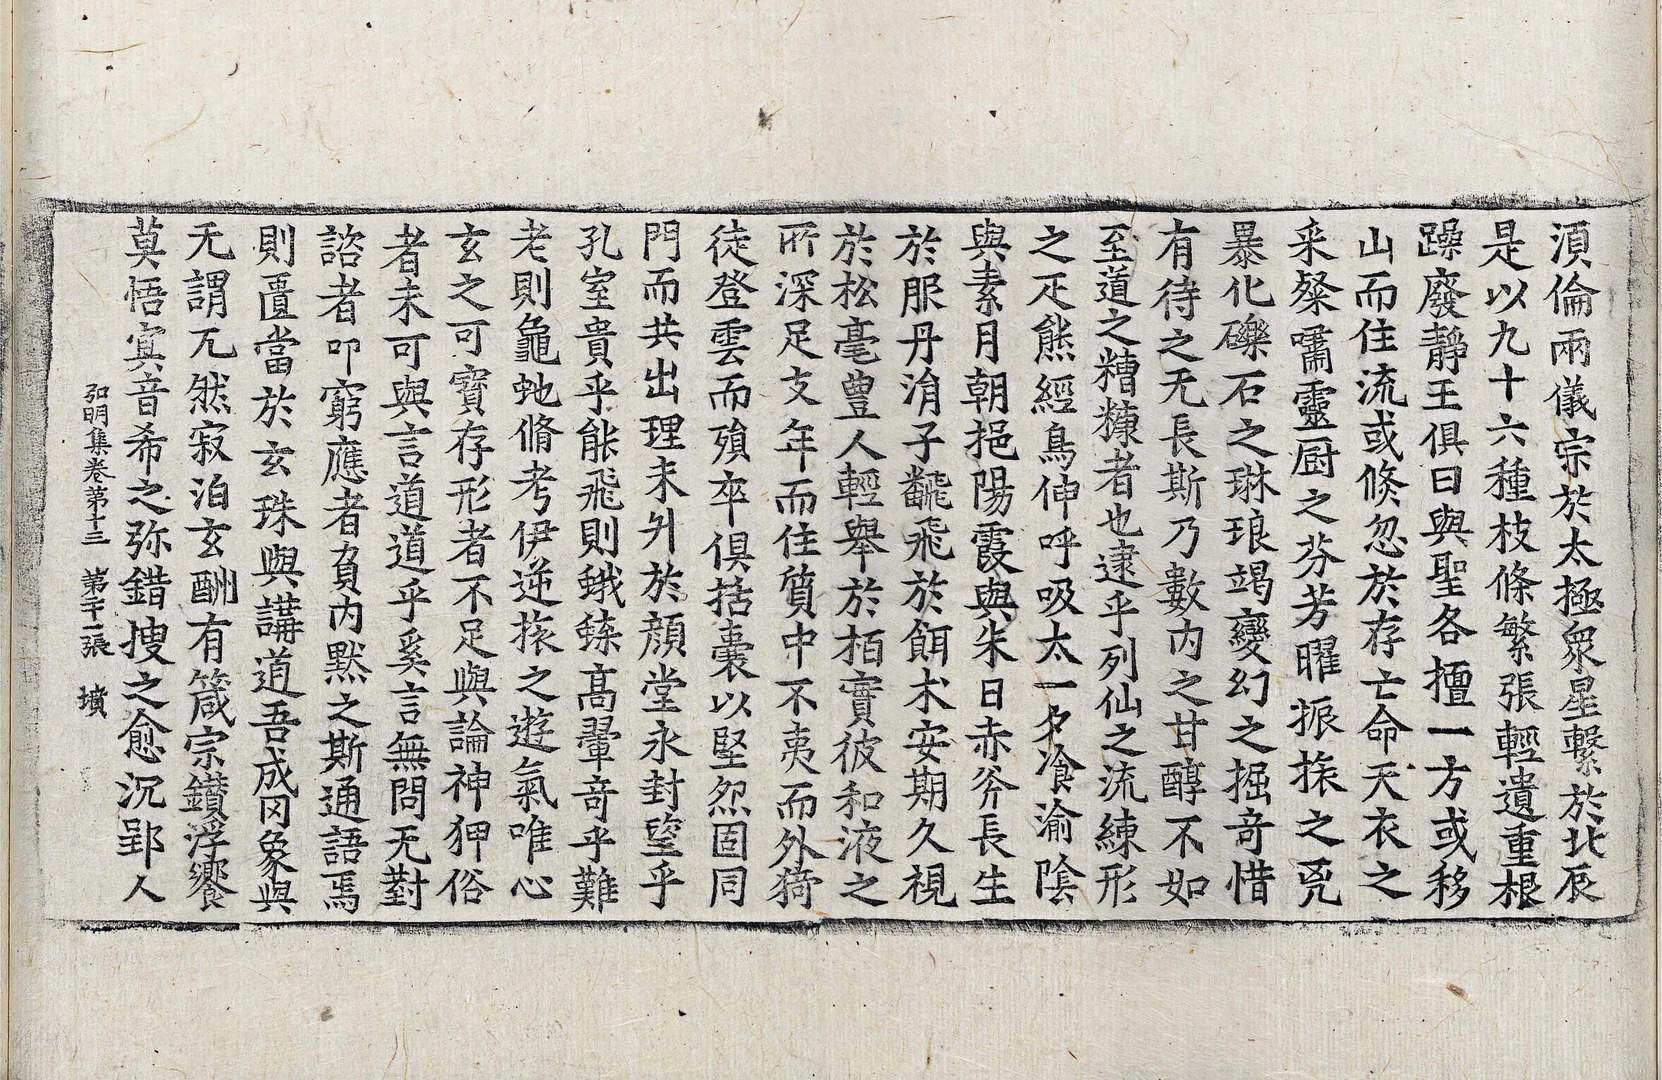 湏倫兩儀宗於太極衆星繫於北辰
是以九十六種枝條繁張輕遺重根
躁廢靜王俱曰與聖各擅一方或移
山而住流或倏忽於存亡命天衣之
来粲嘯靈厨之芬芳曜振㧞之兕
暴化礫石之琳琅竭變幻之掘竒惜
有待之无長斯乃數内之甘醇不如
至道之糟糠者也逮乎列仙之流練形
之疋熊經鳥伸呼吸太一夕湌渝陰
與素月朝挹陽霞與朱日赤斧長生
於服丹涓子飜飛於餌术安期久視
於松毫豊人輕舉於栢實彼和液之
所深足支年而住質中不夷而外猗
徒登雲而殞卒俱括囊以堅怨固同
門而共出理未升於顔堂永封望乎
孔室貴乎能飛則蛾蝝髙翬竒乎難
老則龜虵脩考伊逆旅之遊氣唯心
玄之可寳存形者不足與論神狎俗
者未可與言道道乎奚言無問无對
諮者叩窮應者負内默之斯通語焉
則匱當於玄珠與講道吾成罔象與
无謂兀然寂泊玄酬有箴宗鑚浮響
莫悟寘音希之弥錯搜之愈沉郢人
弘明集卷第十三 第二十一張 墳